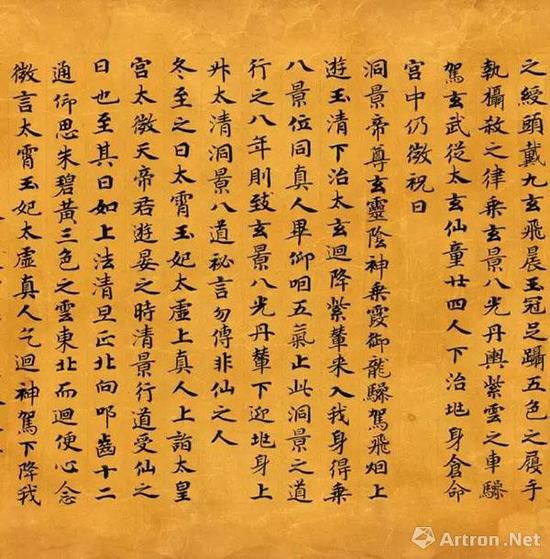 之綬頭戴九玄飛晨玉冠足躡五色之履手
執攝殺之律乘玄景八光丹輿紫雲之車驂
駕玄武從太玄仙童廿四人下治兆身倉命
宮中仍微祝曰
洞景帝尊玄靈陰神乘霞御龍驂駕飛烟上
遊玉清下治太玄迴降紫輦来入我身得乘
八景位同真人畢仰咽五氣止此洞景之道
行之八年則致玄景八光丹輦下迎兆身上
昇太清洞景八道祕言勿傳非仙之人
冬至之日太霄玉妃太虛上真人上詣太皇
宮太微天帝君遊晏之時清景行道受仙之
日也至其日如上法清旦正北向叩齒十二
通仰思朱碧黃三色之雲東北而迴便心念
微言太霄玉妃太虛真人乞迴神駕下降我
Artron.Net